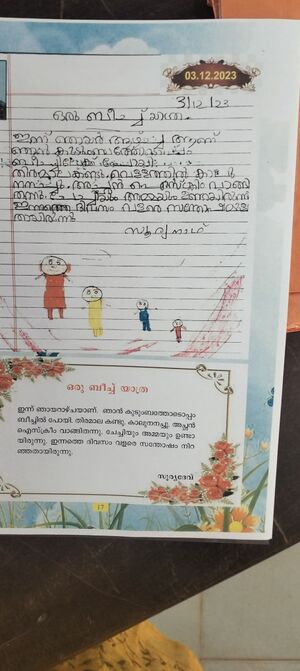 03.12.2023
3/12/23
ഒരു ബീച്ച് യാത്ര
ഇന്ന് ഞായറാഴ്ച ആണ്
ഞാൻ കുടുംബത്തോടൊപ്പം
ബീച്ചിലേക്ക് പോയി
തിരമാല കണ്ടു വെള്ളത്തിൽ കാൽ
നനച്ചു അച്ഛൻ ഐസ്ക്രീം വാങ്ങി
തന്നു ചേച്ചിയും അമ്മയും ഉണ്ടായിരുന്നു
ഇന്നത്തെ ദിവസം വളരെ സന്തോഷ
ഒരു ബീച്ച് യാത്ര
ഇന്ന് ഞായറാഴ്ചയാണ്. ഞാൻ കുടുംബത്തോടൊപ്പം
ബീച്ചിൽ പോയി. തിരമാല കണ്ടു. കാലുനനച്ചു. അച്ഛൻ
ഐസ്ക്രീം വാങ്ങിതന്നു. ചേച്ചിയും അമ്മയും ഉണ്ടാ
യിരുന്നു. ഇന്നത്തെ ദിവസം വളരെ സന്തോഷം നിറ
ഞ്ഞതായിരുന്നു.
സൂര്യദേവ്
17